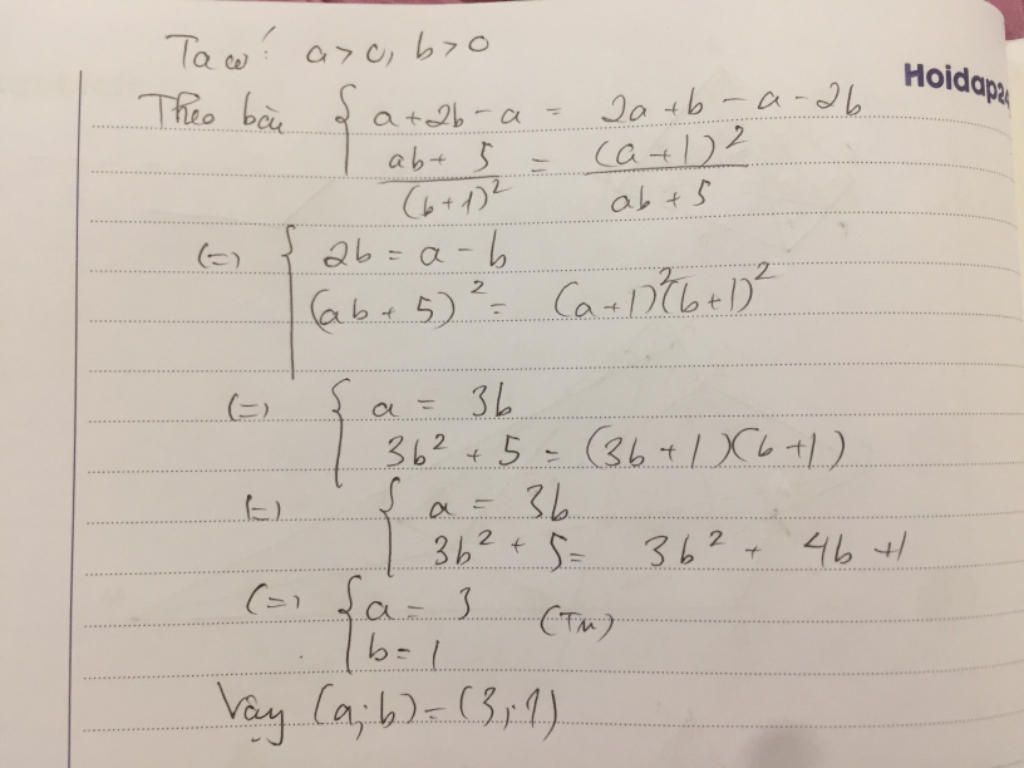 Ta có: a > 0, b > 0
Hoidap24
Theo bài { a + 2b - a = 2a + b - a - 2b
(ab + 5)/(b + 1)² = (a + 1)²/(ab + 5)
(=) { 2b = a - b
(ab + 5)² = (a + 1)²(b + 1)²
(=) { a = 3b
3b² + 5 = (3b + 1)(b + 1)
(=) { a = 3b
3b² + 5 = 3b² + 4b + 1
(=) { a = 3 (TM)
b = 1
Vậy (a; b) = (3; 1)